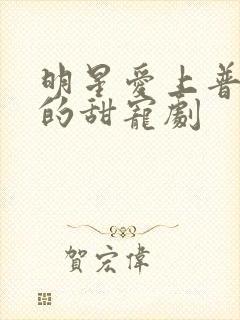 明星愛上普
的甜寵劇
賀宏偉